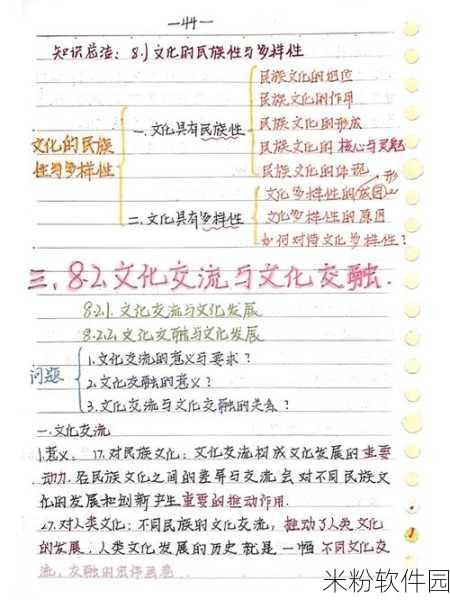 —44—
知识总结：8.1 文化的民族性与多样性
文化的民族性与多样性
一.文化具有民族性
民族文化的地位
民族文化的作用
民族文化的形成
民族文化的核心与灵魂
民族文化的体现
二.文化具有多样性
文化多样性的成因
形
文化多样性的原因
如何对待文化多样性？
三、8.2 文化交流与文化交融.
8.2.1. 文化交流与文化发展
8.2.2. 文化交融与文化发展
问题
1.文化交流的意义与要求？
2.文化交融的意义？
3.文化交流与文化交融的关系？
一.文化交流
1.意义. 17.对民族文化：文化交流构成文化发展的重要
动力.各民族文化之间的差异与交流会对不同民族文
化的发展和创新产生重要的推动作用.
27.对人类文化：不同民族的文化交流，推动了人类文化
的发展.人类文化发展的历史就是一幅不同文化交
流，交融的宏伟画卷
米粉软件园